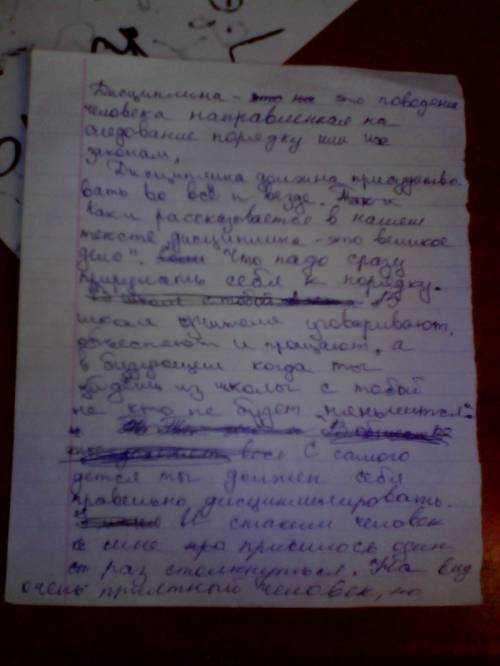 Дисциплина - это поведение
человека направленная на
следование порядку или
законам.
Дисциплина должна присудство
вать во всё и везде.
Как и рассказывается в нашем
тексте дисциплина - это великое
дело". Что надо сразу
приручать себя к порядку.
В
школе учителя уговаривают,
объесняют и прощают, а
в будующем когда ты
из школы с тобой
не кто не будет няньчится.
С самого
дется ты должен себя
правельно дисциплинировать.
И стаким человек
мне при
раз столкнуться. На вид
очень приятный человек, но